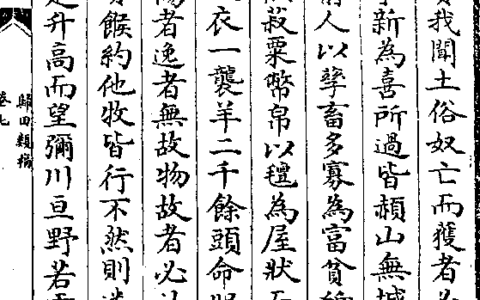 我聞土俗奴亡而獲者
新為喜所過皆赬山無城
人以孳畜多寡為富貧
菽粟幣帛以氊為屋狀
衣一襲羊二千餘頭命
者逸者無故物故者必
餱約他牧皆行不然則
升高而望彌川亘野若
歸田類稿
卷七